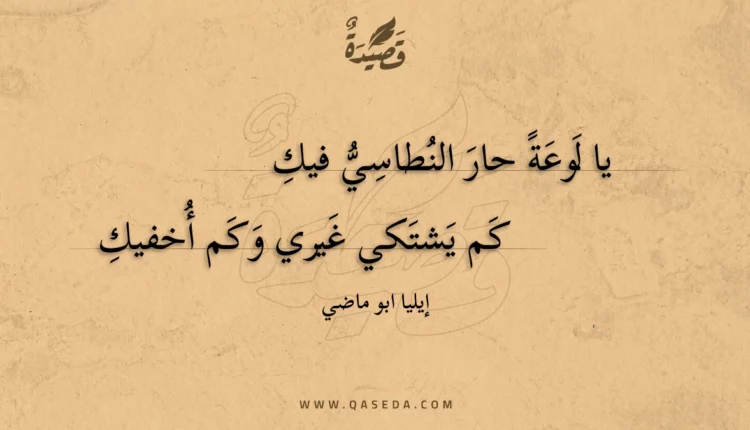 قَصِيْدَةٌ
يا لَوعَةً حارَ النُطاسِيُّ فيكِ
كَم يَشتَكي غَيري وَكَم أُخفيكِ
إيليا ابو ماضي
WWW.QASEDA.COM